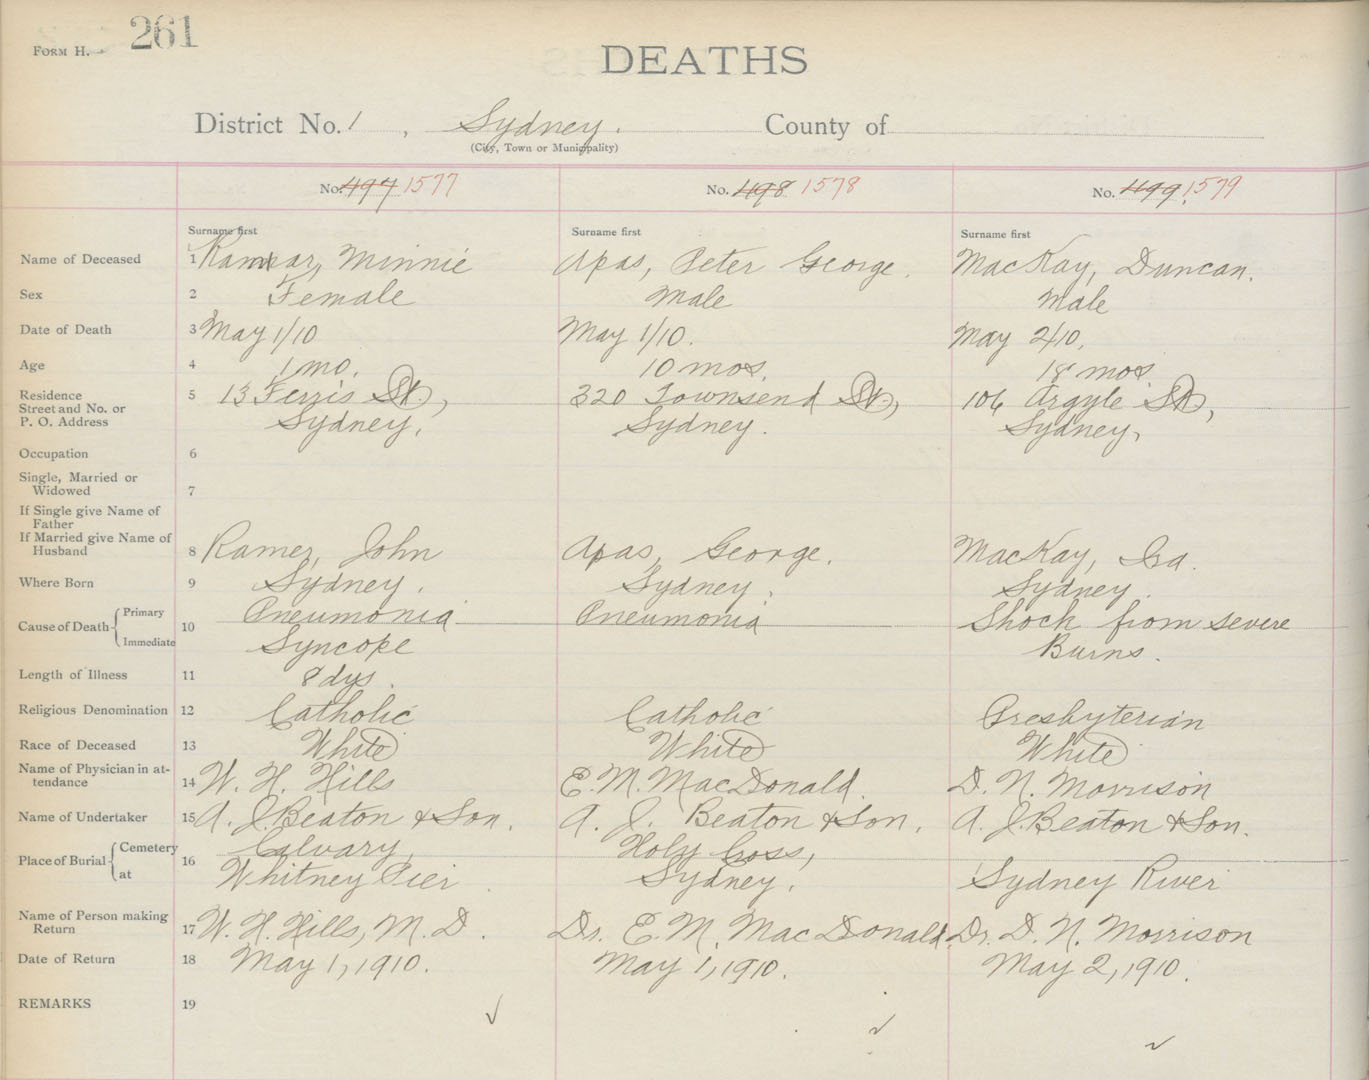 FORM H. 261
DEATHS
District No. 1, Sydney. County of
(City, Town or Municipality)
No. 497 1577 No. 498 1578 No. 499, 1579
Surname first Surname first Surname first
Name of Deceased 1 Minnie Apas, Peter George. MacKay, Duncan.
Sex 2 Female Male Male
Date of Death 3 May 1/10 May 1/10. May 2/10.
Age 4 1 mo. 10 mos. 18 mos
Residence 5 13 Ferris St, 320 Townsend St, 106 Argyle St,
Street and No. or
P. O. Address Sydney. Sydney. Sydney,
Occupation 6
Single, Married or
Widowed 7
If Single give Name of
Father
If Married give Name of
Husband 8 Ramer, John Apas, George. MacKay, Ira.
Where Born 9 Sydney. Sydney. Sydney.
Cause of Death Primary 10 Pneumonia Pneumonia Shock from severe
Immediate Syncope Burns.
Length of Illness 11 8 dys.
Religious Denomination 12 Catholic Catholic Presbyterian
Race of Deceased 13 White White White
Name of Physician in at-
tendance 14 W. H. Hills E. M. MacDonald. D. N. Morrison
Name of Undertaker 15 A. J. Beaton & Son. A. J. Beaton & Son. A. J. Beaton & Son.
Place of Burial Cemetery 16 Calvary, Holy Cross,
at Whitney Pier Sydney. Sydney River
Name of Person making
Return 17 W. H. Hills, M. D. Dr. E. M. MacDonald. Dr. D. N. Morrison
Date of Return 18 May 1, 1910. May 1, 1910. May 2, 1910.
REMARKS 19